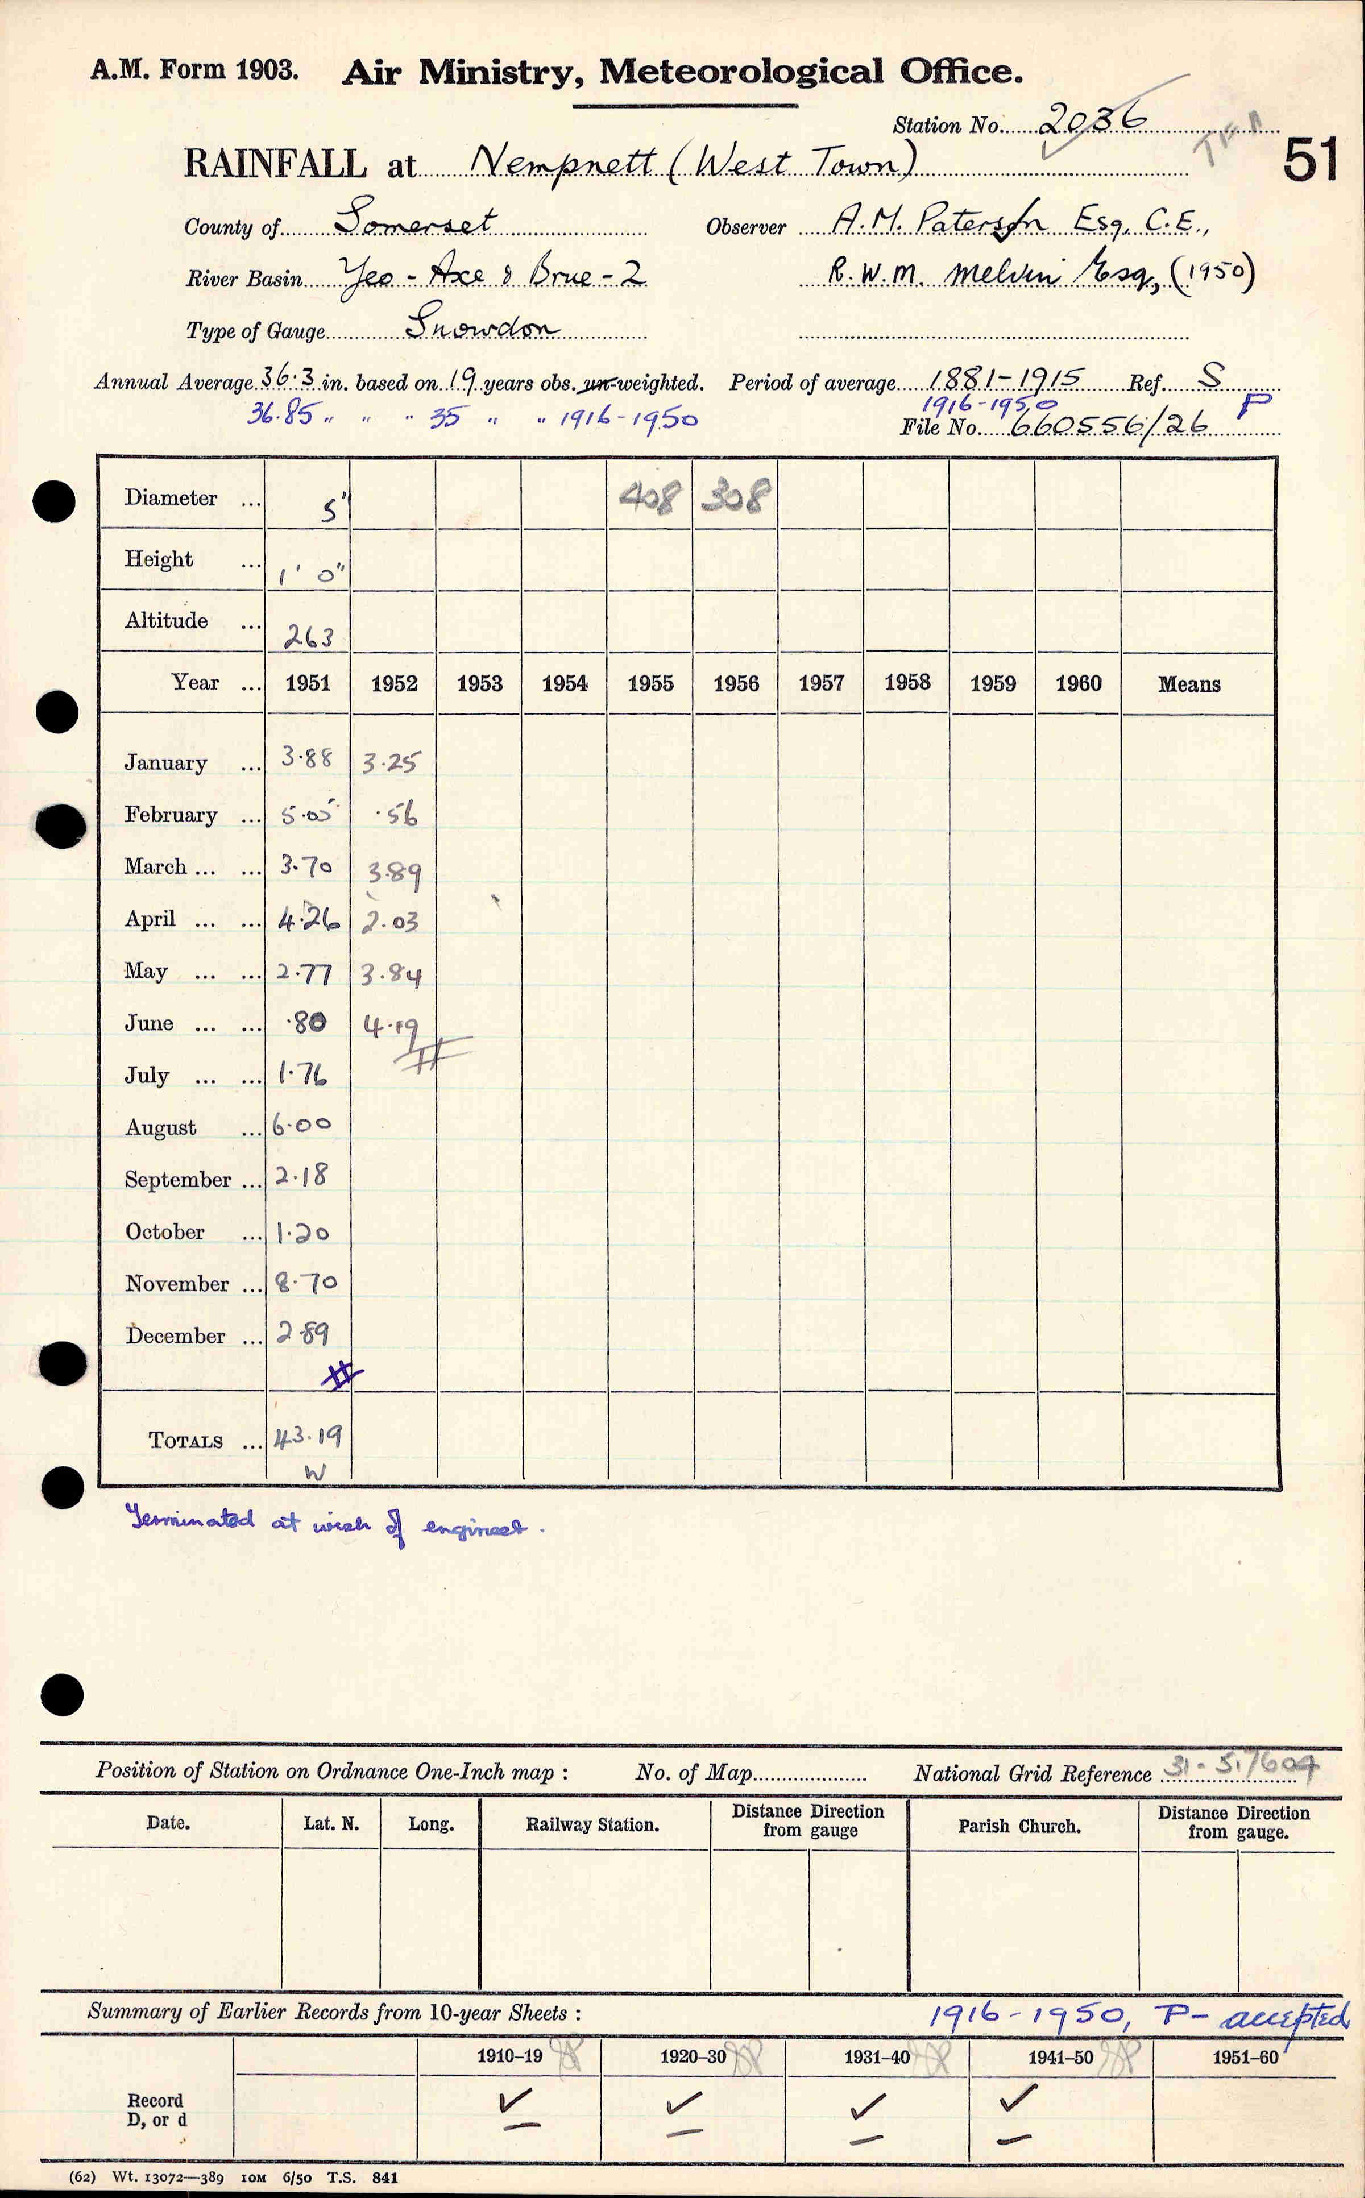 A.M. Form 1903. Air Ministry, Meteorological Office.
Station No. 2036
51
RAINFALL at Nempnett (West Town)
County of Somerset Observer A.M. Paterson Esq. C.E.,
River Basin Yeo - Axe & Brue - 2 R.W.M. Melvin Esq, (1950)
Type of Gauge Snowdon
Annual Average 36.3 in. based on 19 years obs. un-weighted. Period of average 1881-1915 Ref. S
36.85 " " " 35 " " 1916-1950 1916-1950 P
File No. 660556/26
Diameter ... 5" 408 308
Height ... 1' 0"
Altitude ... 263
Year ... 1951 1952 1953 1954 1955 1956 1957 1958 1959 1960 Means
January ... 3.88 3.25
February ... 5.05 .56
March ... ... 3.70 3.89
April ... ... 4.26 2.03
May ... ... 2.77 3.84
June ... ... .80 4.19
July ... ... 1.76
August ... 6.00
September ... 2.18
October ... 1.20
November ... 8.70
December ... 2.89
TOTALS ... 43.19
W
Terminated at wish of engineer.
Position of Station on Ordnance One-Inch map : No. of Map National Grid Reference 31-517604
Date. Lat. N. Long. Railway Station. Distance Direction from gauge Parish Church. Distance Direction from gauge.
Summary of Earlier Records from 10-year Sheets : 1916-1950, P- accepted
1910-19 1920-30 1931-40 1941-50 1951-60
Record
D, or d
✓ ✓ ✓ ✓
(62) Wt. 13072—389 10M 6/50 T.S. 841